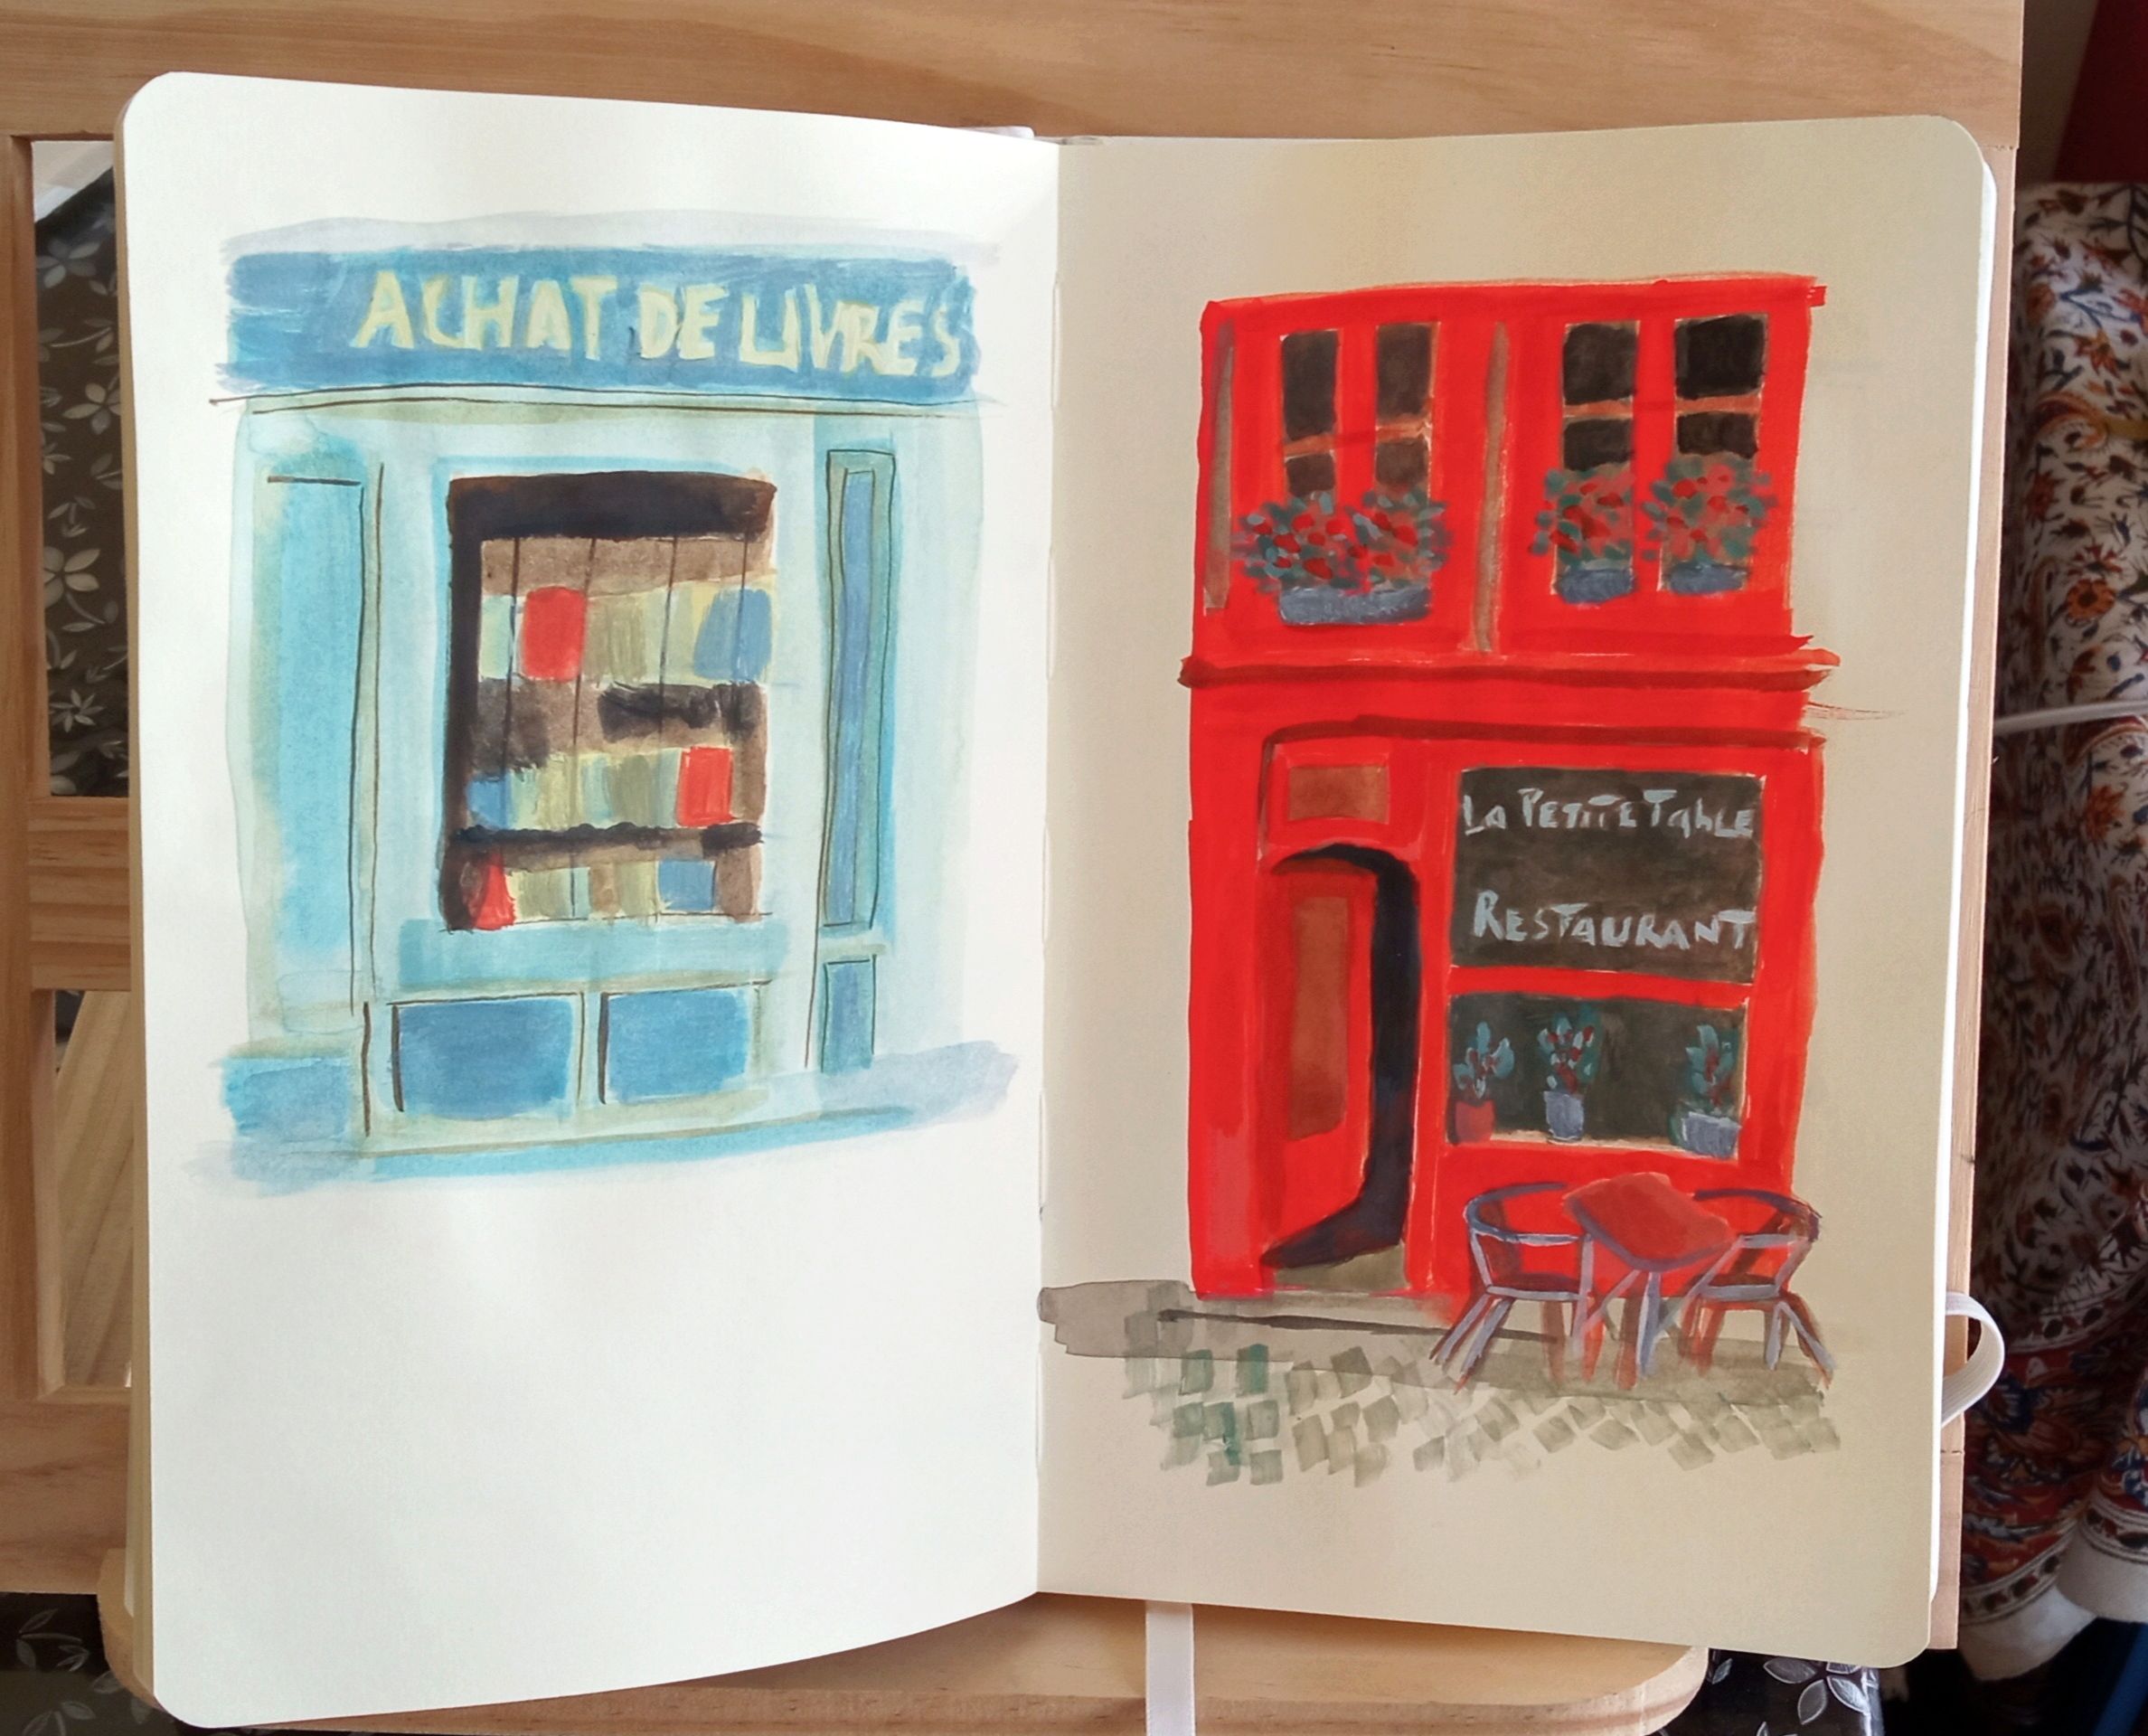 ACHAT DE LIVRES
La PETITE TabLE
RESTAURANT